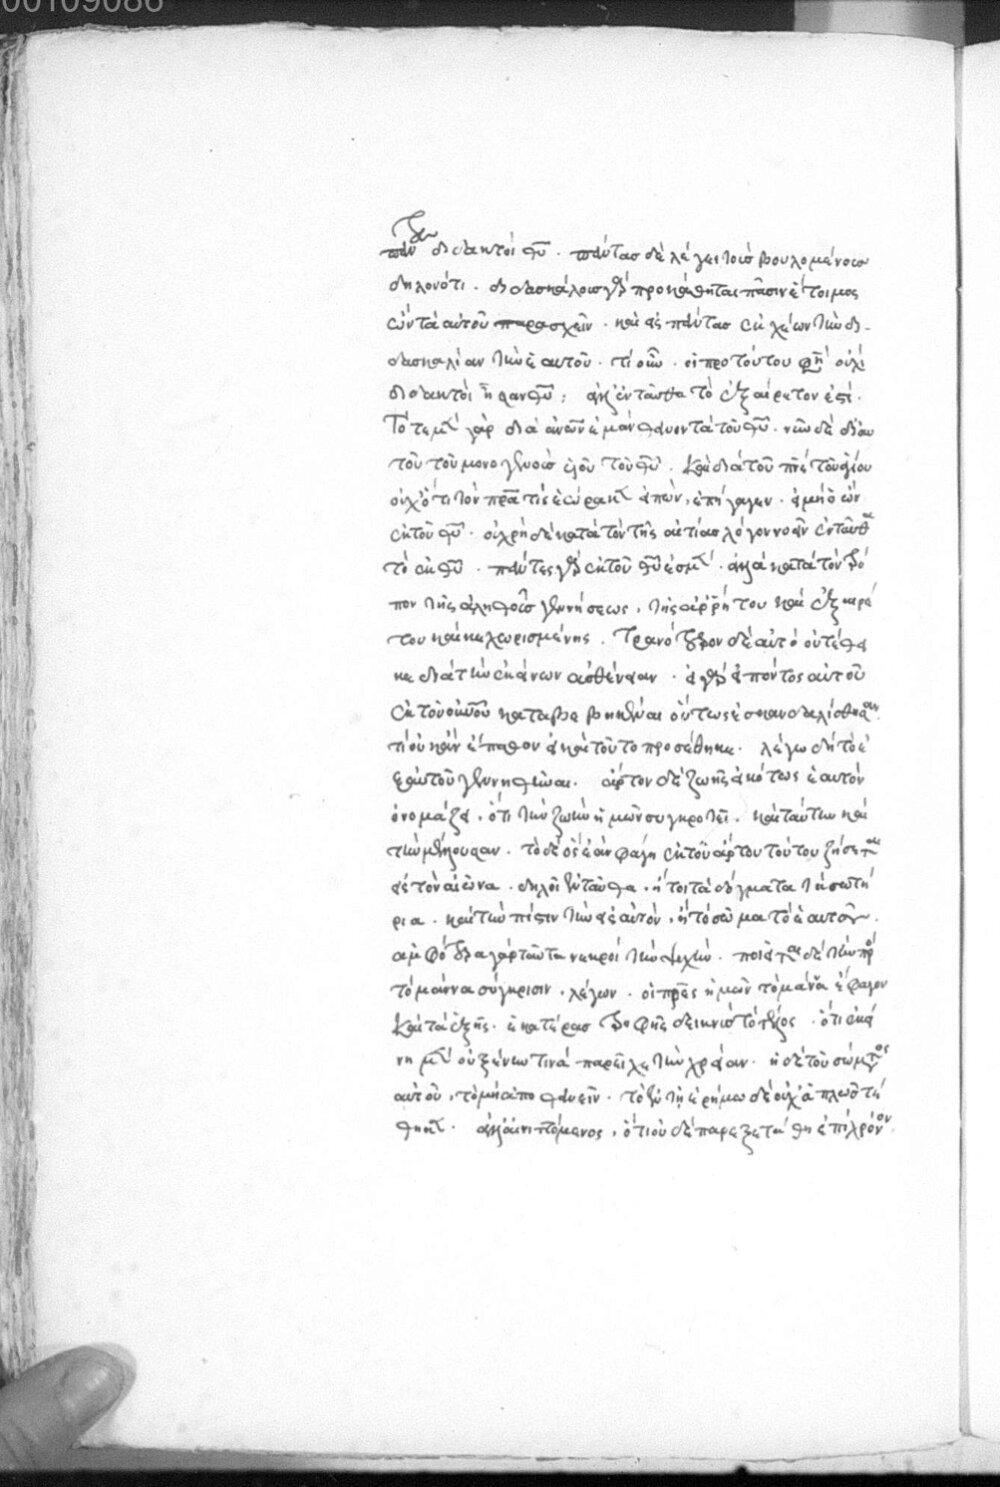 00109086
διδακτοὶ θῦ. πάντας δὲ λέγει τοῖς βουλομένοις
δηλονότι. διδασκάλοις γὰρ προκάθηται πᾶσιν ἕτοιμος
ὢν τὰ αὑτοῦ παρασχεῖν. καὶ εἰς πάντας ἐκχέων τὴν δι-
δασκαλίαν τὴν ἑαυτοῦ. τί οὖν. οἱ πρὸ τούτου φησὶ οὐχὶ
διδακτοὶ ἦσαν θῦ; ἀλλ' ἐνταῦθα τὸ ἐξαίρετον ἐστί.
Τότε μὲν γὰρ διὰ ἀνων ἐμάνθανον τὰ τοῦ θῦ. νῦν δὲ διὰ
τοῦ τοῦ μονογενοῦς υἱοῦ τοῦ θῦ. Καὶ διὰ τοῦ πνς τοῦ ἁγίου
οὐχ' ὅτι τὸν πρα τὶς ἑώρακεν εἰπών, ἐπήγαγεν. εἰ μὴ ὁ ὢν
ἐκ τοῦ θῦ. οὐ χρὴ δὲ κατὰ τὸν τῆς αἰτίας λόγον νοεῖν ἐνταῦθα
τὸ ἐκ θῦ. πάντες γὰρ ἐκ τοῦ θῦ ἐσμέν. ἀλλὰ κατὰ τὸν τρό
πον τῆς ἀληθοῦς γεννήσεως, τῆς ἀρρήτου καὶ ἐξαιρέ
του καὶ κεχωρισμένης. Τρανότερον δὲ αὐτὸ οὐ τέθει
κε διὰ τὴν ἐκείνων ἀσθένειαν. εἰ γὰρ εἰπόντος αὐτοῦ
ἐκ τοῦ ουνου καταβεβηκέναι οὕτως ἐσκανδαλίσθησαν.
τί οὐκ ἂν ἔπαθον εἰ καὶ τοῦτο προσέθηκε. λέγω δὴ τὸ ἐ
ξ αὐτοῦ γεννηθῆναι. ἄρτον δὲ ζωῆς εἰκότως ἑαυτὸν
ὀνομάζει, ὅτι τὴν ζωὴν ἡμῶν συγκροτεῖ. καὶ ταύτην καὶ
τὴν μέλλουσαν. τὸ δὲ ὃς ἐὰν φάγῃ ἐκ τοῦ ἄρτου τούτου ζήσεται
εἰς τὸν αἰῶνα. δηλοῖ ἐνταῦθα, ἤτοι τὰ δόγματα τὰ σωτή
ρια. καὶ τὴν πίστιν τὴν εἰς αὐτόν, ἢ τὸ σῶμα τὸ ἑαυτοῦ.
ἀμφότερα γὰρ ταῦτα νευροῖ τὴν ψυχήν. ποιεῖται δὲ τὴν πρὸς
τὸ μάννα σύγκρισιν, λέγων. οἱ πρες ἡμῶν τὸ μάννα ἔφαγον
Καὶ τὰ ἐξῆς. ἑκατέρας τροφῆς δεικνὺς τὸ τέλος. ὅτι ἐκεί
νη μὲν οὐ ξένην τινὰ παρεῖχε τὴν χρείαν. ἡ δὲ τοῦ σώματος
αὐτοῦ, τὸ μὴ ἀποθανεῖν. τὸ ἐν τῇ ἐρήμω δὲ οὐχ ἁπλῶς τέ
θηκεν. ἀλλ' αἰνιττόμενος, ὅτι οὐδὲ παρεξετάθη ἐπὶ χρόνον.